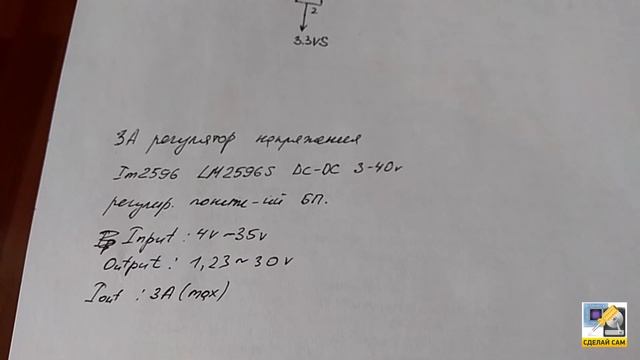 2
3.3VS
3A регулятор напряжения
Im2596 LM2596S DC-DC 3-40v
регулир. пониж-ий БП.
Input : 4v~35v
Output : 1,23~30v
Iout : 3A (max)
СДЕЛАЙ САМ